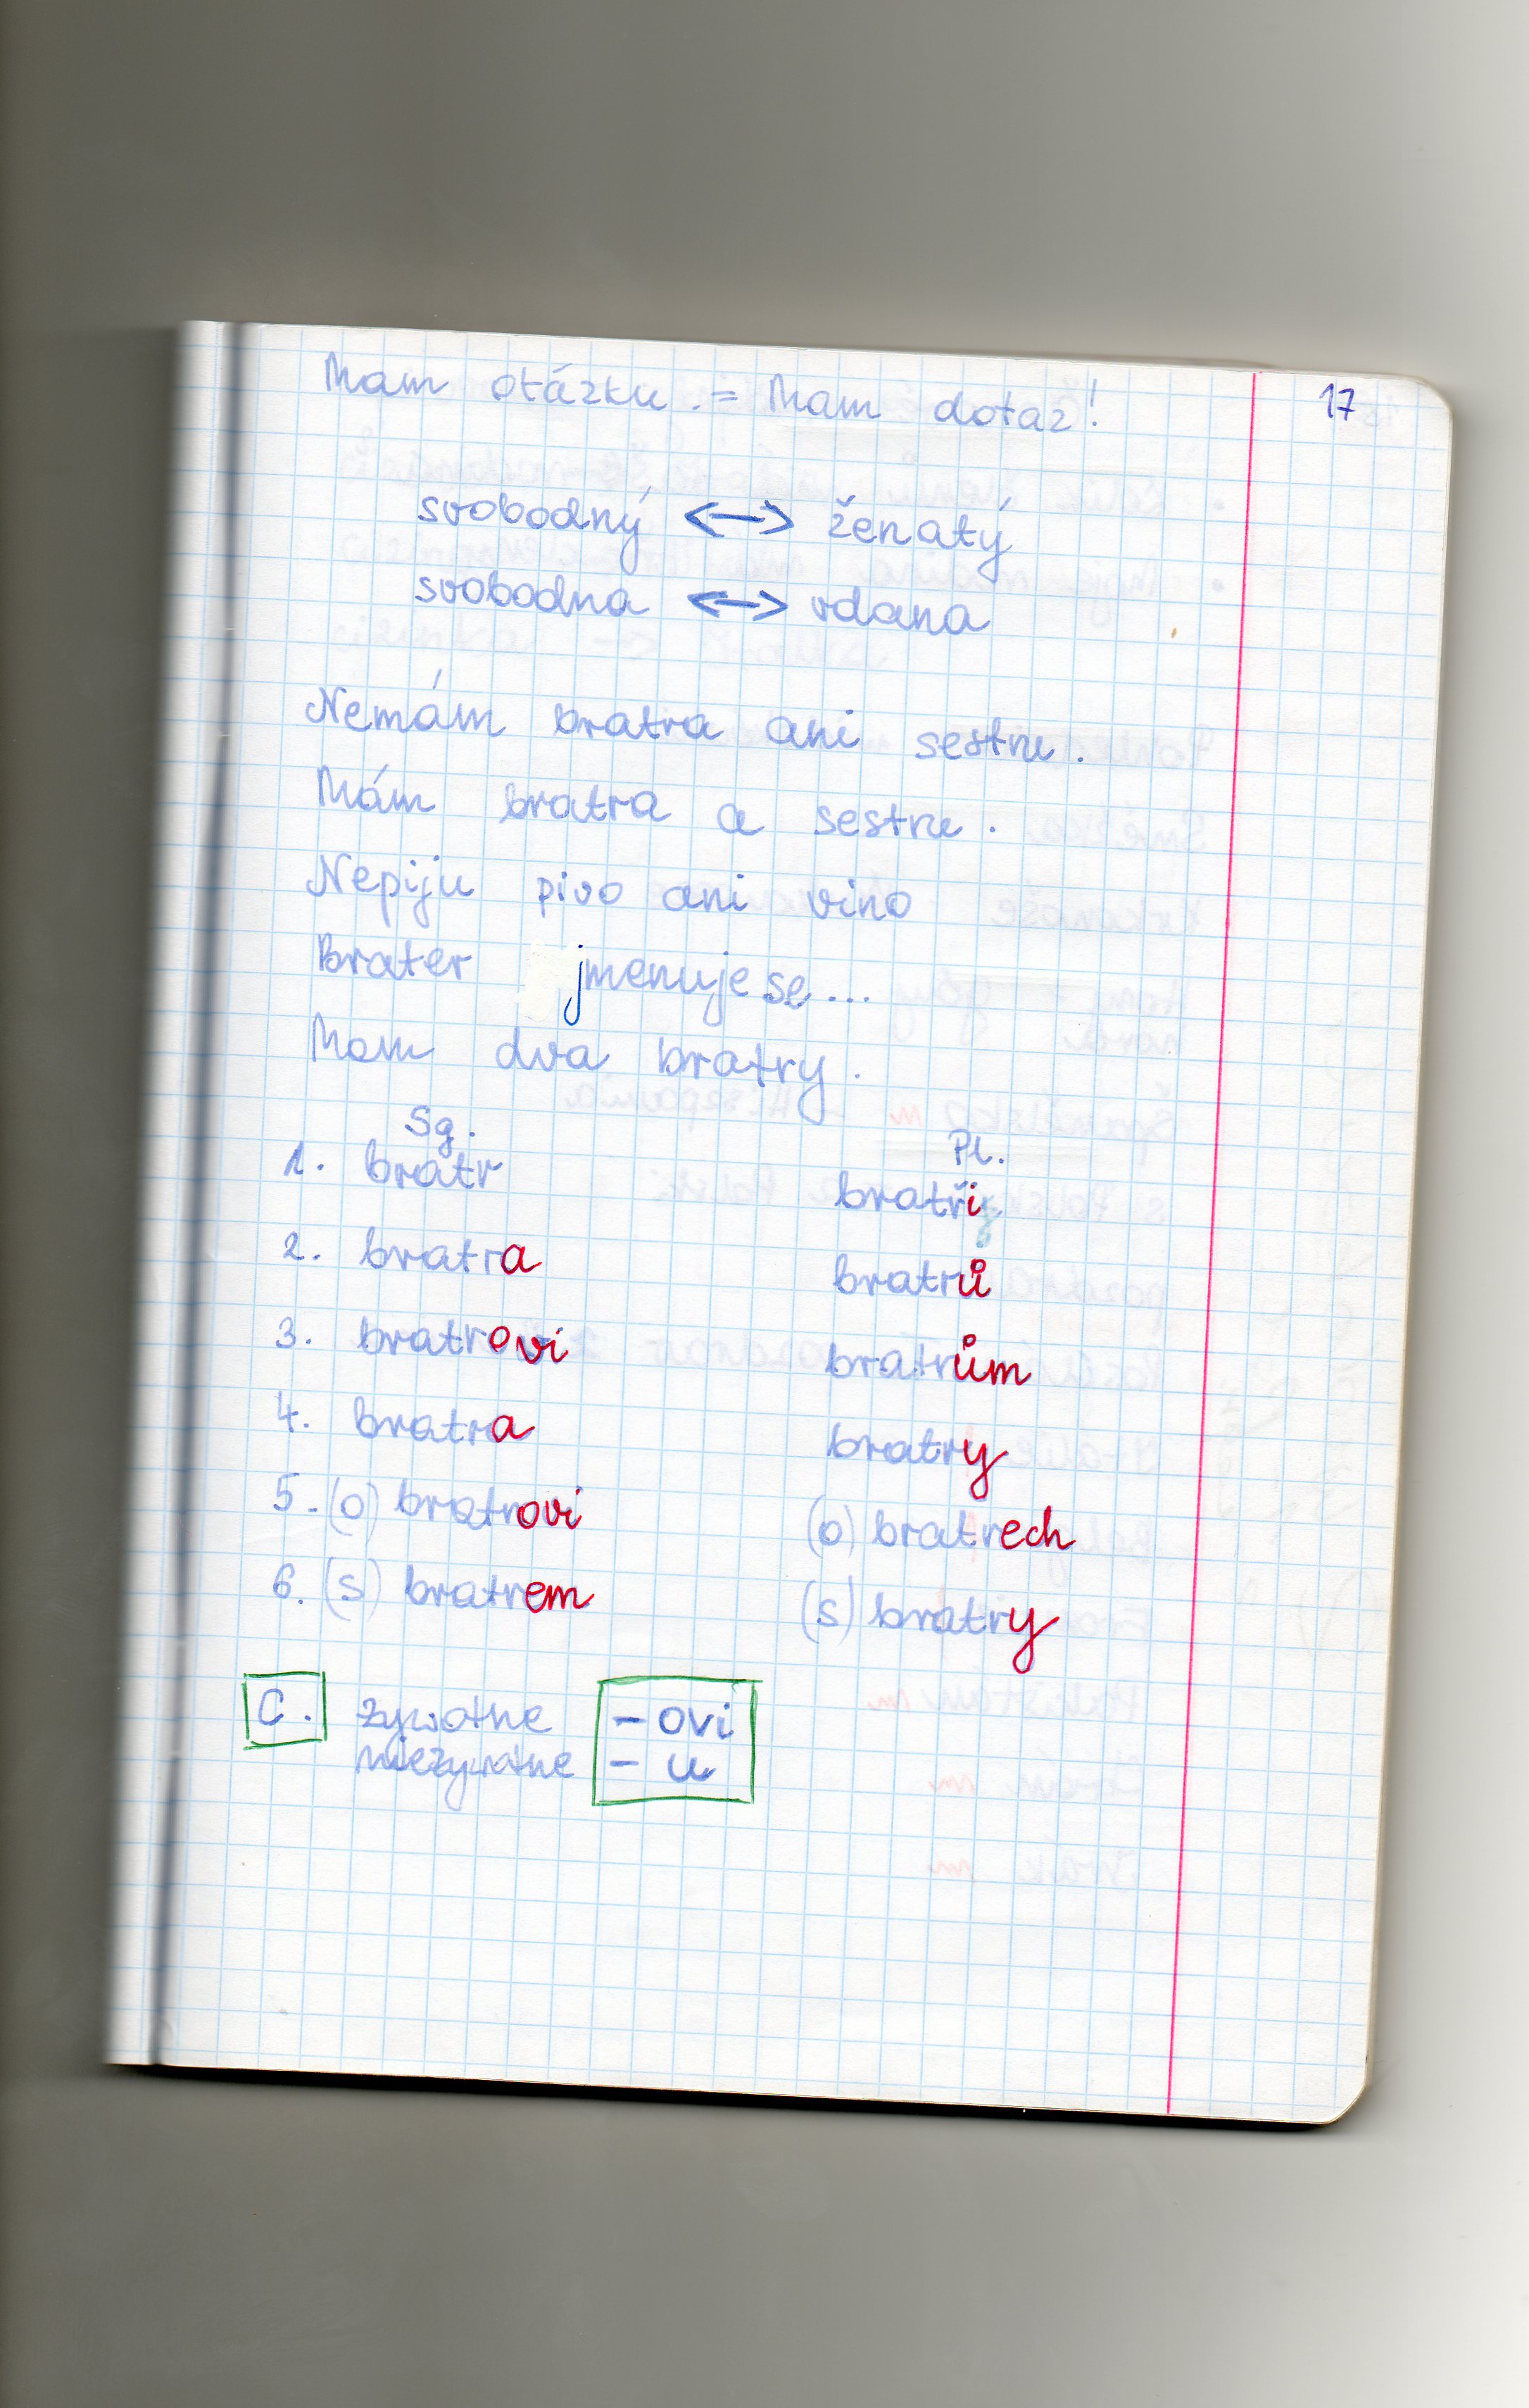 Mam otázku. = Mam dotaz!
17
svobodný <-> ženatý
svobodna <-> vdana
Nemám bratra ani sestru.
Mám bratra a sestru.
Nepiju pivo ani vino
Brater jmenuje se...
Mam dva bratry.
Sg. Pl.
1. bratr bratři
2. bratra bratrů
3. bratrovi bratrům
4. bratra bratry
5. (o) bratrovi (o) bratrech
6. (s) bratrem (s) bratry
C. żywotne - ovi
nieżywotne - u